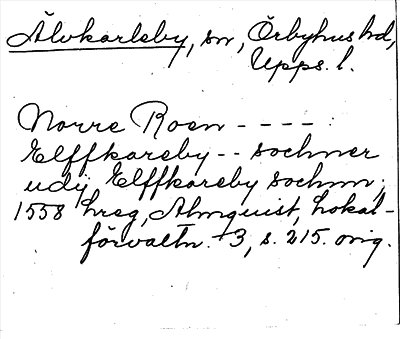 Älvkarleby, sn, Örbyhus hd,
Upps. l.
Norre Roen - - - - :
Elffkareby - - sochner
udij Elffkareby sochnn;
1558 hreg, Almquist, Lokal-
förvaltn. +3, s. 215. orig.